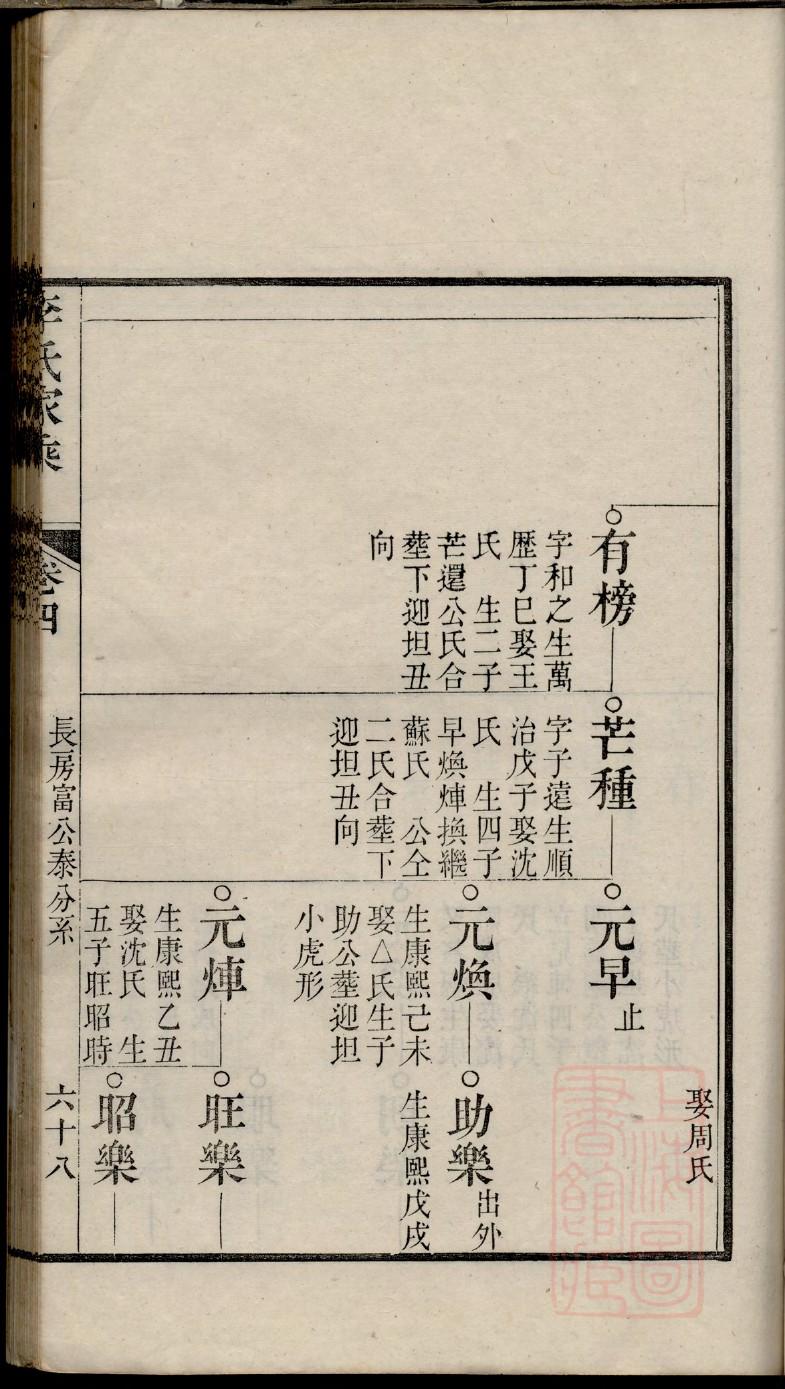 娶周氏
有榜
字和之生萬
歷丁巳娶王
氏 生二子
芒還公氏合
塟下迎坦丑
向
芒種
字子遠生順
治戊子娶沈
氏 生四子
早煥煉換繼
蘇氏 公仝
二氏合塟下
迎坦丑向
元早 止
元煥
生康熙己未
娶△氏生子
助公塟迎坦
小虎形
助樂 出外
生康熙戊戌
元煉
生康熙乙丑
娶沈氏 生
五子旺昭時
旺樂
昭樂
李氏家乘
卷四
長房富公泰分系
六十八
上海圖書館藏